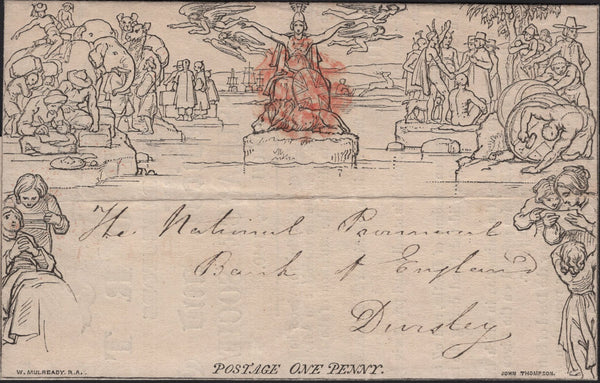 The National Provincial
Bank of England
Dursley
W. MULREADY. R.A.
POSTAGE ONE PENNY.
JOHN THOMPSON.